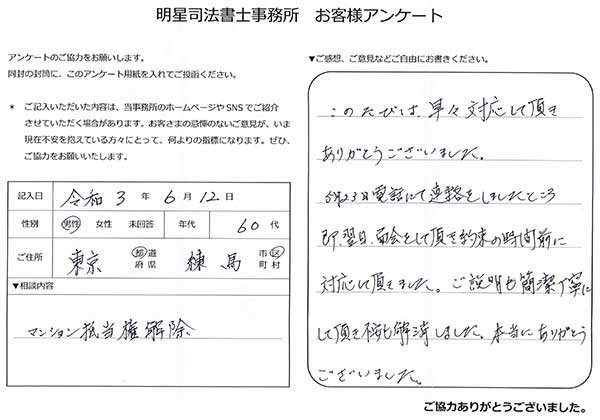 明星司法書士事務所 お客様アンケート
アンケートのご協力をお願いします。
同封の封筒に、このアンケート用紙を入れてご投函ください。
* ご記入いただいた内容は、当事務所のホームページやSNSでご紹介
させていただく場合があります。お客さまの忌憚のないご意見が、いま
現在不安を抱えている方々にとって、何よりの指標になります。ぜひ、
ご協力をお願いいたします。
記入日 令和 3 年 6 月 12 日
性別 男性 女性 未回答 年代 60 代
ご住所 東京 都道府県 練馬 市区町村
▼相談内容
マンション抵当権解除
▼ご感想、ご意見などご自由にお書きください。
このたびは、早々対応して頂き
ありがとうございました。
5月23日電話にて連絡をしましたところ
即、翌日、面会をして頂き約束の時間前に
対応して頂きました。ご説明も簡潔丁寧に
して頂き 解消しました。本当にありがとう
ございました。
ご協力ありがとうございました。